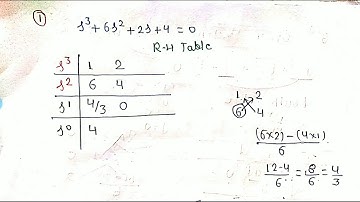 ①
s³+6s²+2s+4 = 0
R-H Table
s³ 1 2
s² 6 4
s¹ 4/3 0
s⁰ 4
1 2
6 4
(6×2)-(4×1)/6
12-4/6 = 8/6 = 4/3